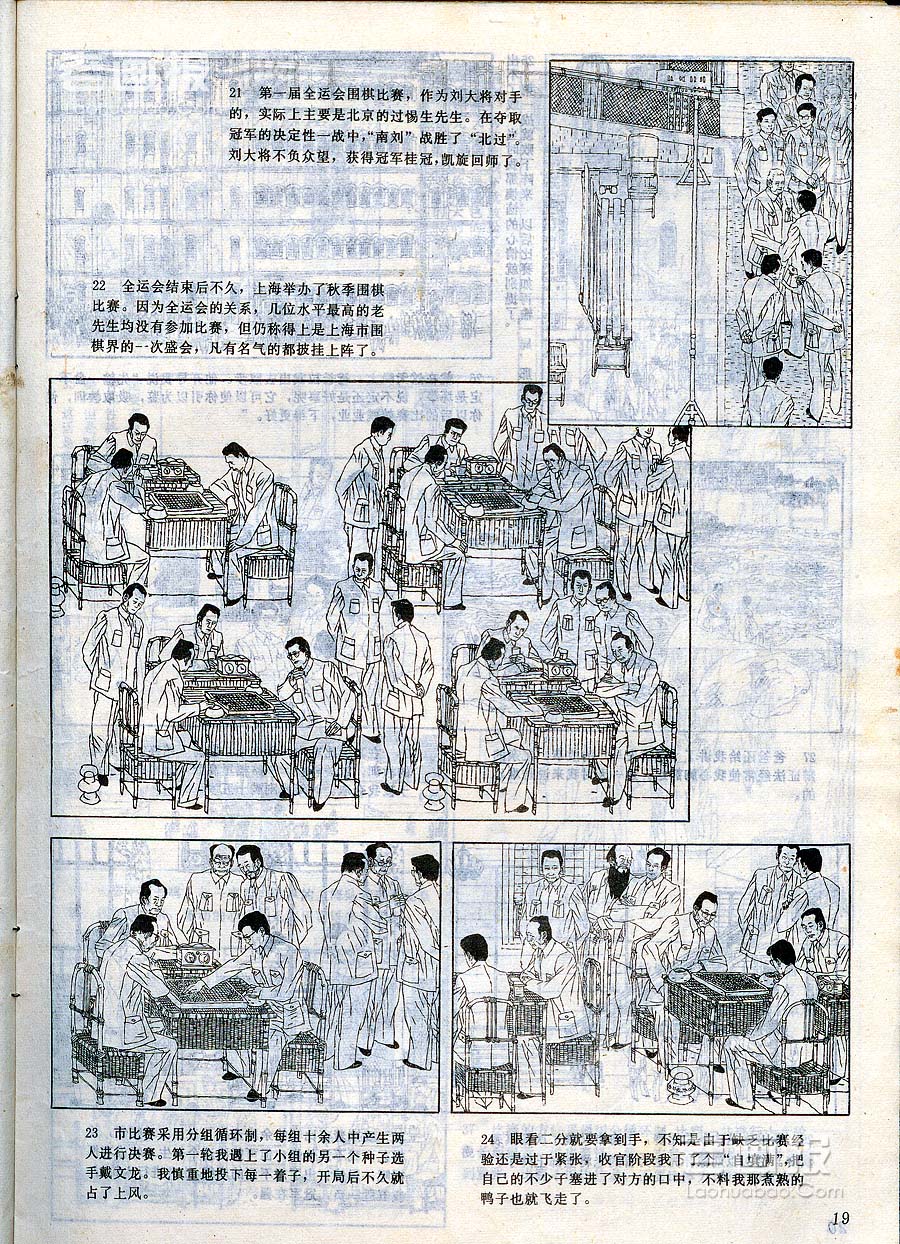 21 第一届全运会围棋比赛，作为刘大将对手
的，实际上主要是北京的过惕生先生。在夺取
冠军的决定性一战中，“南刘”战胜了“北过”。
刘大将不负众望，获得冠军桂冠，凯旋回师了。
22 全运会结束后不久，上海举办了秋季围棋
比赛。因为全运会的关系，几位水平最高的老
先生均没有参加比赛，但仍称得上是上海市围
棋界的一次盛会，凡有名气的都披挂上阵了。
23 市比赛采用分组循环制，每组十余人中产生两
人进行决赛。第一轮我遇上了小组的另一个种子选
手戴文龙。我慎重地投下每一着子，开局后不久就
占了上风。
24 眼看二分就要拿到手，不知是由于缺乏比赛经
验还是过于紧张，收官阶段我下了个“自填满”，把
自己的不少子塞进了对方的口中，不料我那煮熟的
鸭子也就飞走了。
老画报
Laohuabao.Com
19